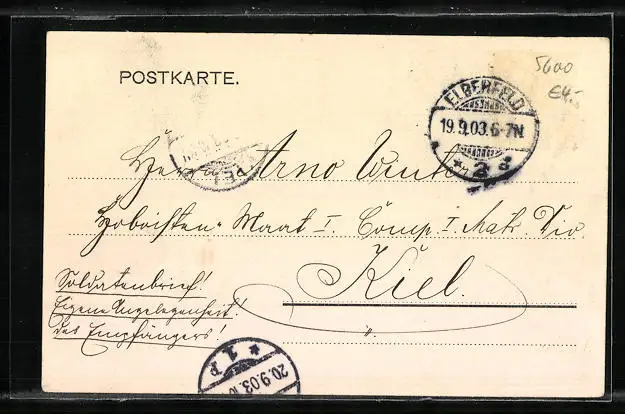 5600
€4.-
POSTKARTE.
ELBERFELD
19.9.03.6-7N
* 2 d
Herrn Arno Winter
Hoboisten-Maat I. Comp. I. Matr. Div.
Kiel.
Soldatenbrief!
Eigene Angelegenheit
des Empfängers!
* 1 P
20.9.03